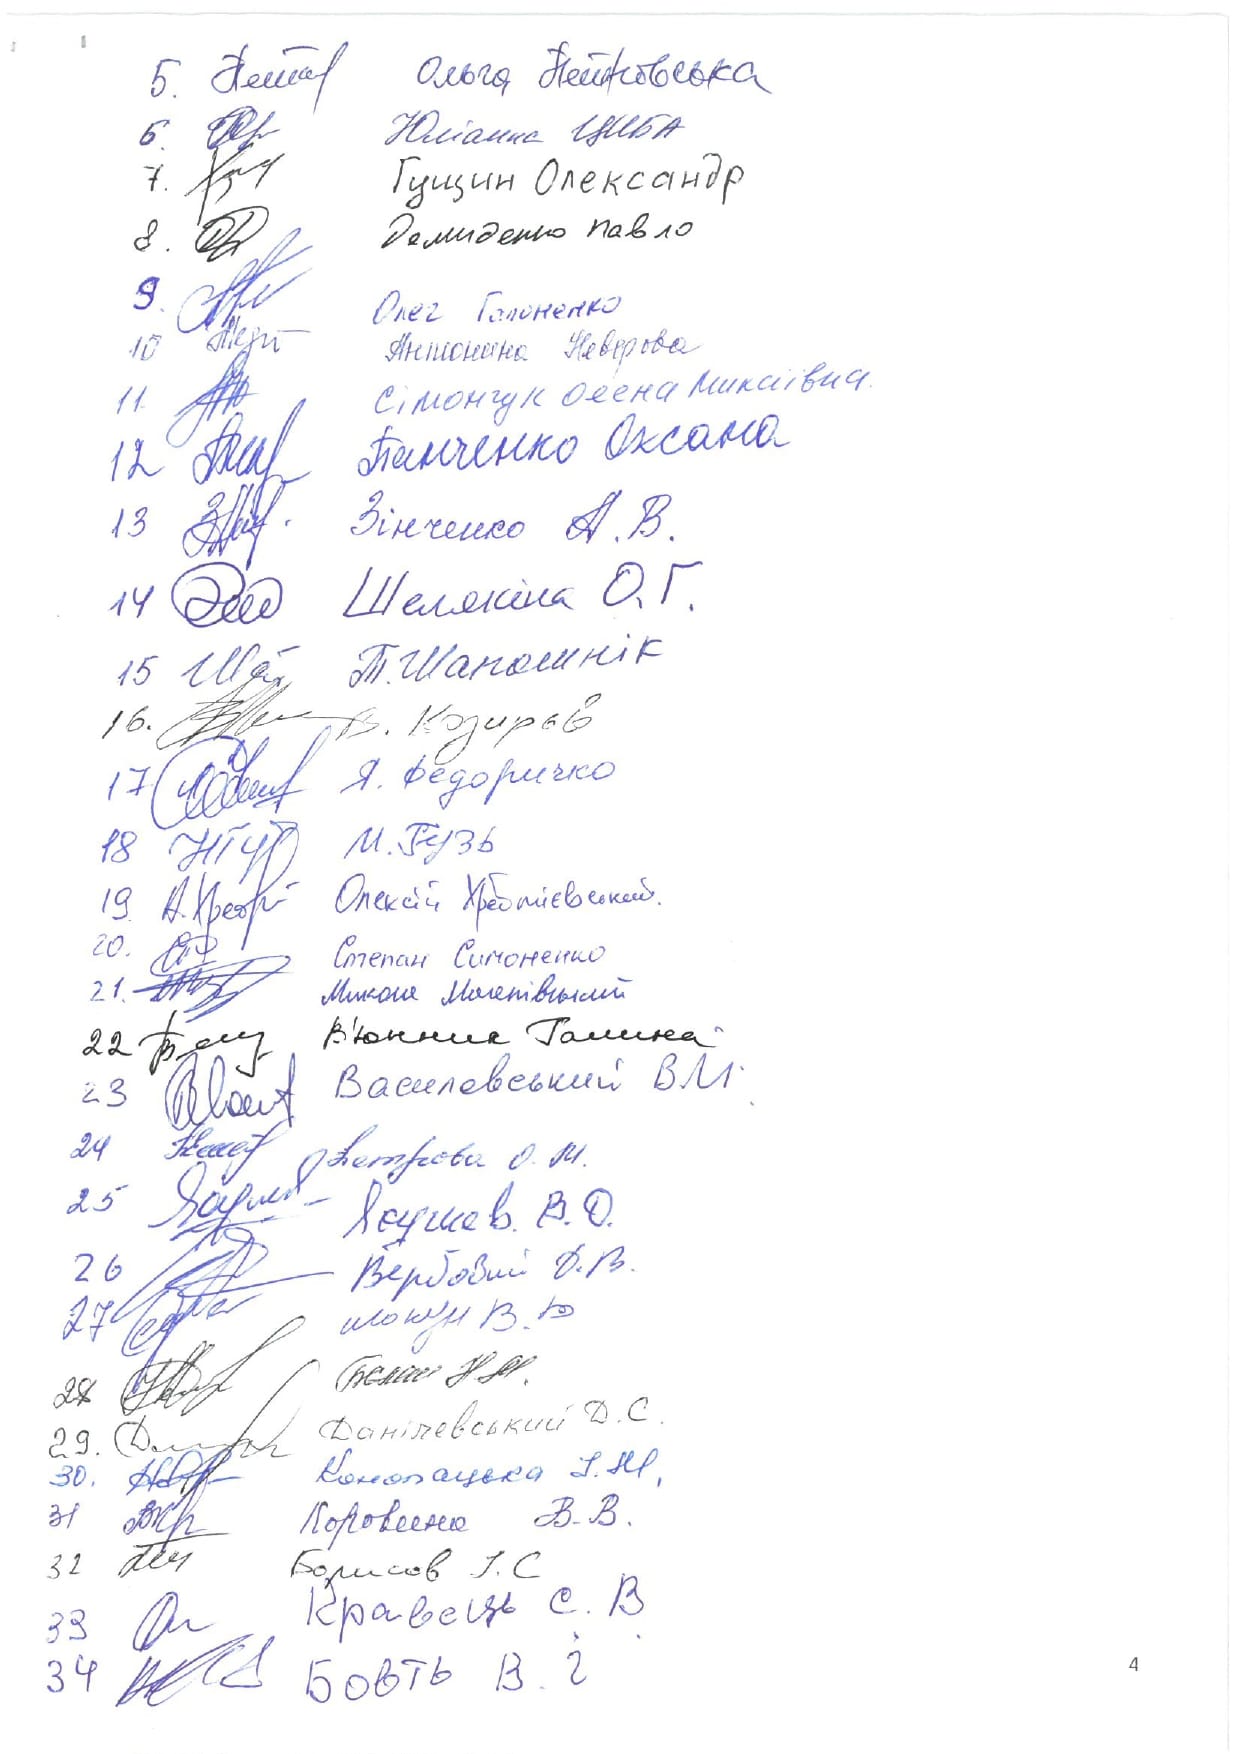 5. Ольга Петковська
6. Юліанна ЦИБА
7. Гущин Олександр
8. Демиденко Павло
9. Олег Гапоненко
10 Антоніна Неверова
11. Сімончук Олена Миколаївна.
12 Панченко Оксана
13 Зінченко А.В.
14 Шелякіна О.Г.
15 Т. Шапошнік
16. В. Козирєв
17 Я. Федоричко
18 М. Гузь
19 Олексій
20. Степан Симоненко
21. Микола
22 В'юнник Галина
23 Василевський В М.
24 Петрова О. М.
25 В.О.
26 Вербовий Д.В.
27 В.Ю
28 Н.М.
29. Данілевський Д.С.
30. Конопацька І.М.
31 Коровина В.В.
32 Борисов І.С
33 Кравець С. В.
34 Бовть В. І
4